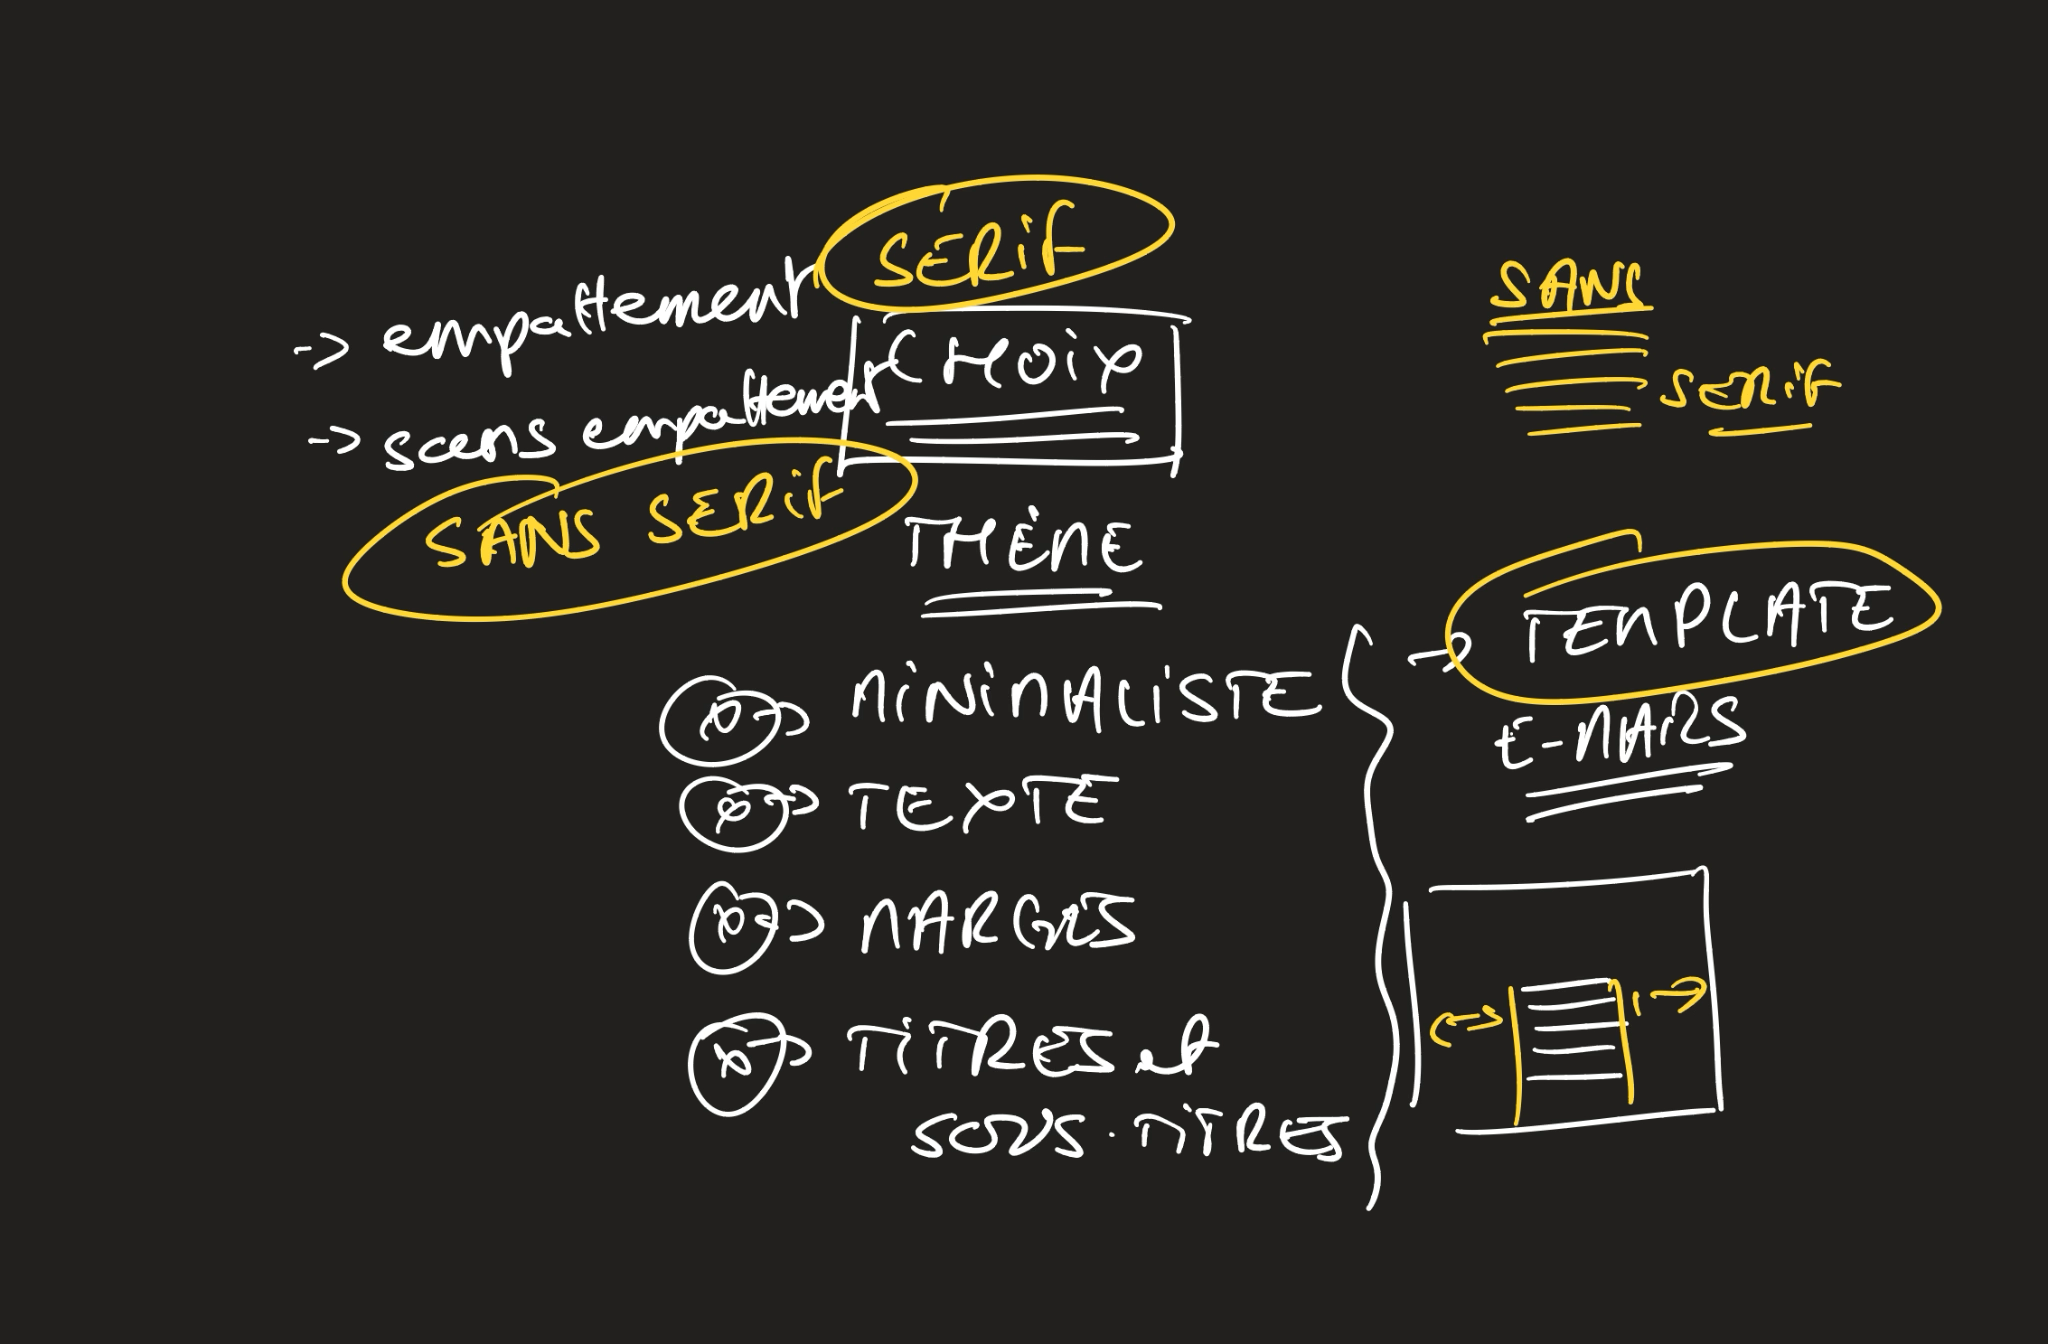 SERIF
-> empattement
CHOIX
-> sans empattement
SANS SERIF
THÈME
-> MINIMALISTE
-> TEXTE
-> MARGES
-> TITRES et
SOUS-TITRES
SANS
SERIF
-> TEMPLATE
E-MAILS